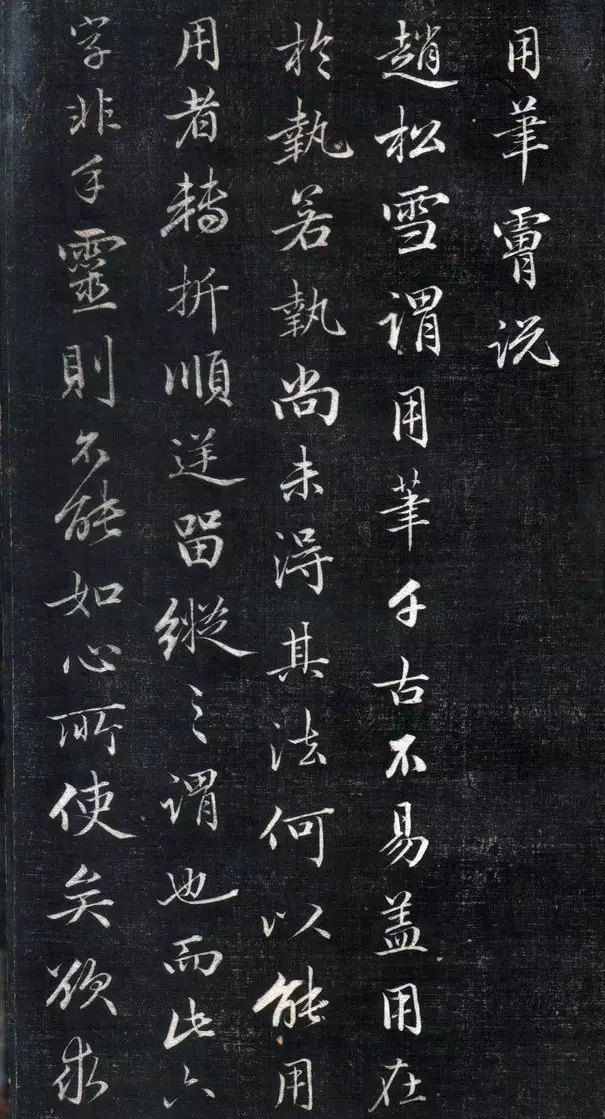 用筆膚说
趙松雪謂用筆千古不易盖用在
於執若執尚未得其法何以能用
用者轉折順逆留縱之謂也而此六
字非手靈則不能如心所使矣欲求